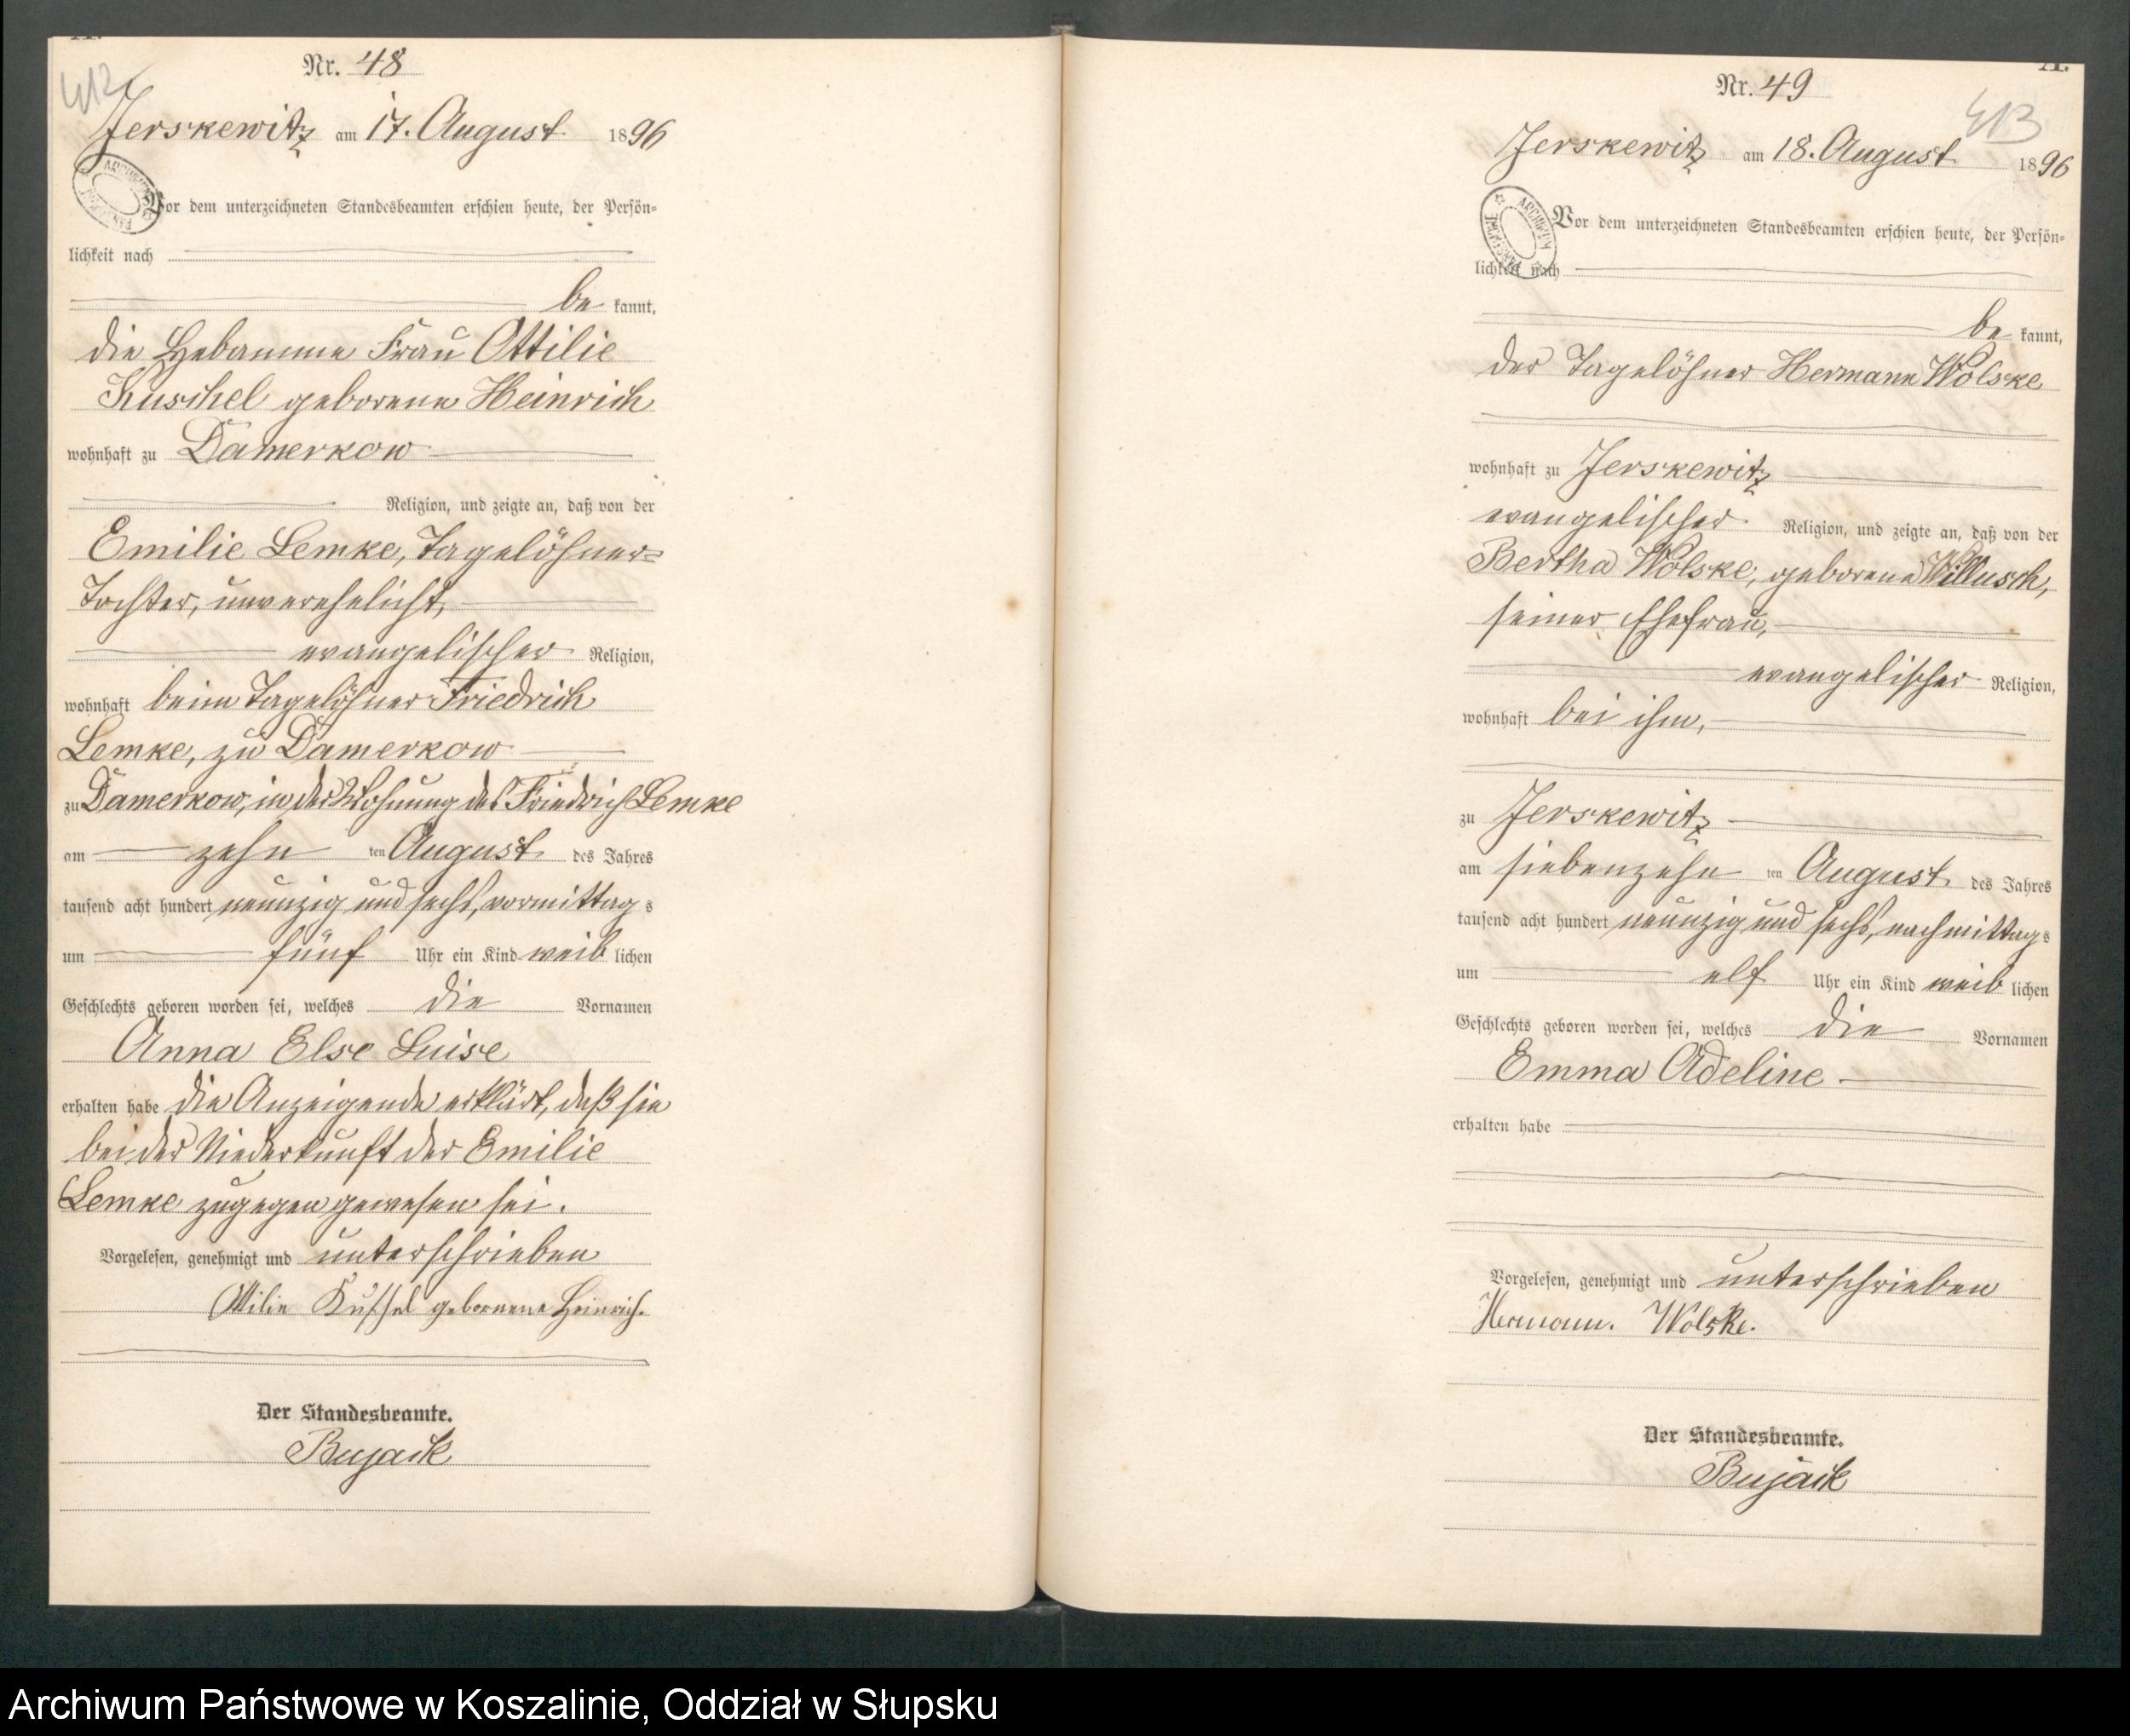 A.
Nr. 48
412
Jerskewitz am 17. August 1896
Vor dem unterzeichneten Standesbeamten erschien heute, der Persön-
lichkeit nach
be kannt,
die Hebamme Frau Ottilie
Kuschel geborene Heinrich
wohnhaft zu Damerkow
Religion, und zeigte an, daß von der
Emilie Lemke, Tagelöhner-
Tochter, unverehelicht,
evangelischer Religion,
wohnhaft beim Tagelöhner Friedrich
Lemke, zu Damerkow
zu Damerkow, in der Wohnung des Friedrich Lemke
am zehn ten August des Jahres
tausend acht hundert neunzig und sechs, vormittag s
um fünf Uhr ein Kind weib lichen
Geschlechts geboren worden sei, welches die Vornamen
Anna Else Luise
erhalten habe die Anzeigende erklärt, daß sie
bei der Niederkunft der Emilie
Lemke zugegen gewesen sei.
Vorgelesen, genehmigt und unterschrieben
Ottilie Kuschel geborene Heinrich.
Der Standesbeamte.
Bujack
A.
Nr. 49
413
Jerskewitz am 18. August 1896
ARCHIWUM PAŃSTWOWE
Vor dem unterzeichneten Standesbeamten erschien heute, der Persön-
lichkeit nach
be kannt,
der Tagelöhner Hermann Wolske
wohnhaft zu Jerskewitz
evangelischer Religion, und zeigte an, daß von der
Bertha Wolske, geborene Willusch,
seiner Ehefrau,
evangelischer Religion,
wohnhaft bei ihm,
zu Jerskewitz
am siebenzehn ten August des Jahres
tausend acht hundert neunzig und sechs, nachmittag s
um elf Uhr ein Kind weib lichen
Geschlechts geboren worden sei, welches die Vornamen
Emma Adeline
erhalten habe
Vorgelesen, genehmigt und unterschrieben
Hermann. Wolske.
Der Standesbeamte.
Bujack
Archiwum Państwowe w Koszalinie, Oddział w Słupsku